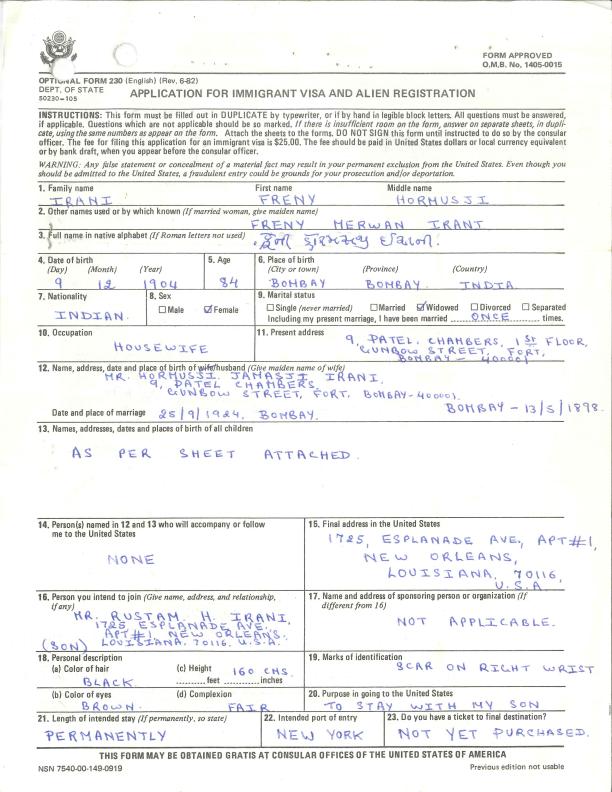 FORM APPROVED
O.M.B. No, 1405-0015
OPTIONAL FORM 230 (English) (Rev, 6-82)
DEPT, OF STATE
50230-105
APPLICATION FOR IMMIGRANT VISA AND ALIEN REGISTRATION
INSTRUCTIONS: This form must be filled out in DUPLICATE by typewriter, or if by hand in legible block letters. All questions must be answered,
if applicable. Questions which are not applicable should be so marked. If there is insufficient room on the form, answer on separate sheets, in dupli-
cate, using the same numbers as appear on the form. Attach the sheets to the forms. DO NOT SIGN this form until instructed to do so by the consular
officer. The fee for filing this application for an immigrant visa is $25.00. The fee should be paid in United States dollars or local currency equivalent
or by bank draft, when you appear before the consular officer.
WARNING: Any false statement or concealment of a material fact may result in your permanent exclusion from the United States. Even though you
should be admitted to the United States, a fraudulent entry could be grounds for your prosecution and/or deportation.
1. Family name First name Middle name
IRANI FRENY HORMUSJI
2. Other names used or by which known (If married woman, give maiden name)
FRENY MERWAN IRANI
3. Full name in native alphabet (If Roman letters not used)
4. Date of birth 5. Age 6. Place of birth
(Day) (Month) (Year) (City or town) (Province) (Country)
9 12 1904 84 BOMBAY BOMBAY. INDIA.
7. Nationality 8. Sex 9. Marital status
INDIAN. Male Female Single (never married) Married Widowed Divorced Separated
Including my present marriage, I have been married ONCE times.
10. Occupation 11. Present address
HOUSEWIFE 9, PATEL CHAMBERS, 1ST FLOOR,
GUNBOW STREET, FORT,
BOMBAY - 400001
12. Name, address, date and place of birth of wife/husband (Give maiden name of wife)
MR. HORMUSJI JAMASJI IRANI.
9, PATEL CHAMBERS,
GUNBOW STREET, FORT. BOMBAY-400001.
BOMBAY - 13/5/1898.
Date and place of marriage 25/9/1924, BOMBAY.
13. Names, addresses, dates and places of birth of all children
AS PER SHEET ATTACHED.
14. Person(s) named in 12 and 13 who will accompany or follow
me to the United States
NONE
15. Final address in the United States
1725, ESPLANADE AVE., APT#1,
NEW ORLEANS,
LOUISIANA, 70116,
U.S.A.
16. Person you intend to join (Give name, address, and relationship,
if any)
MR. RUSTAM H. IRANI,
1725 ESPLANADE AVE.
APT#1, NEW ORLEANS.
(SON) LOUISIANA. 70116. U.S.A.
17. Name and address of sponsoring person or organization (If
different from 16)
NOT APPLICABLE.
18. Personal description
(a) Color of hair (c) Height 160 CMS.
BLACK. feet inches
(b) Color of eyes (d) Complexion
BROWN. FAIR
19. Marks of identification
SCAR ON RIGHT WRIST
20. Purpose in going to the United States
TO STAY WITH MY SON
21. Length of intended stay (If permanently, so state) 22. Intended port of entry 23. Do you have a ticket to final destination?
PERMANENTLY NEW YORK NOT YET PURCHASED.
THIS FORM MAY BE OBTAINED GRATIS AT CONSULAR OFFICES OF THE UNITED STATES OF AMERICA
NSN 7540-00-149-0919 Previous edition not usable